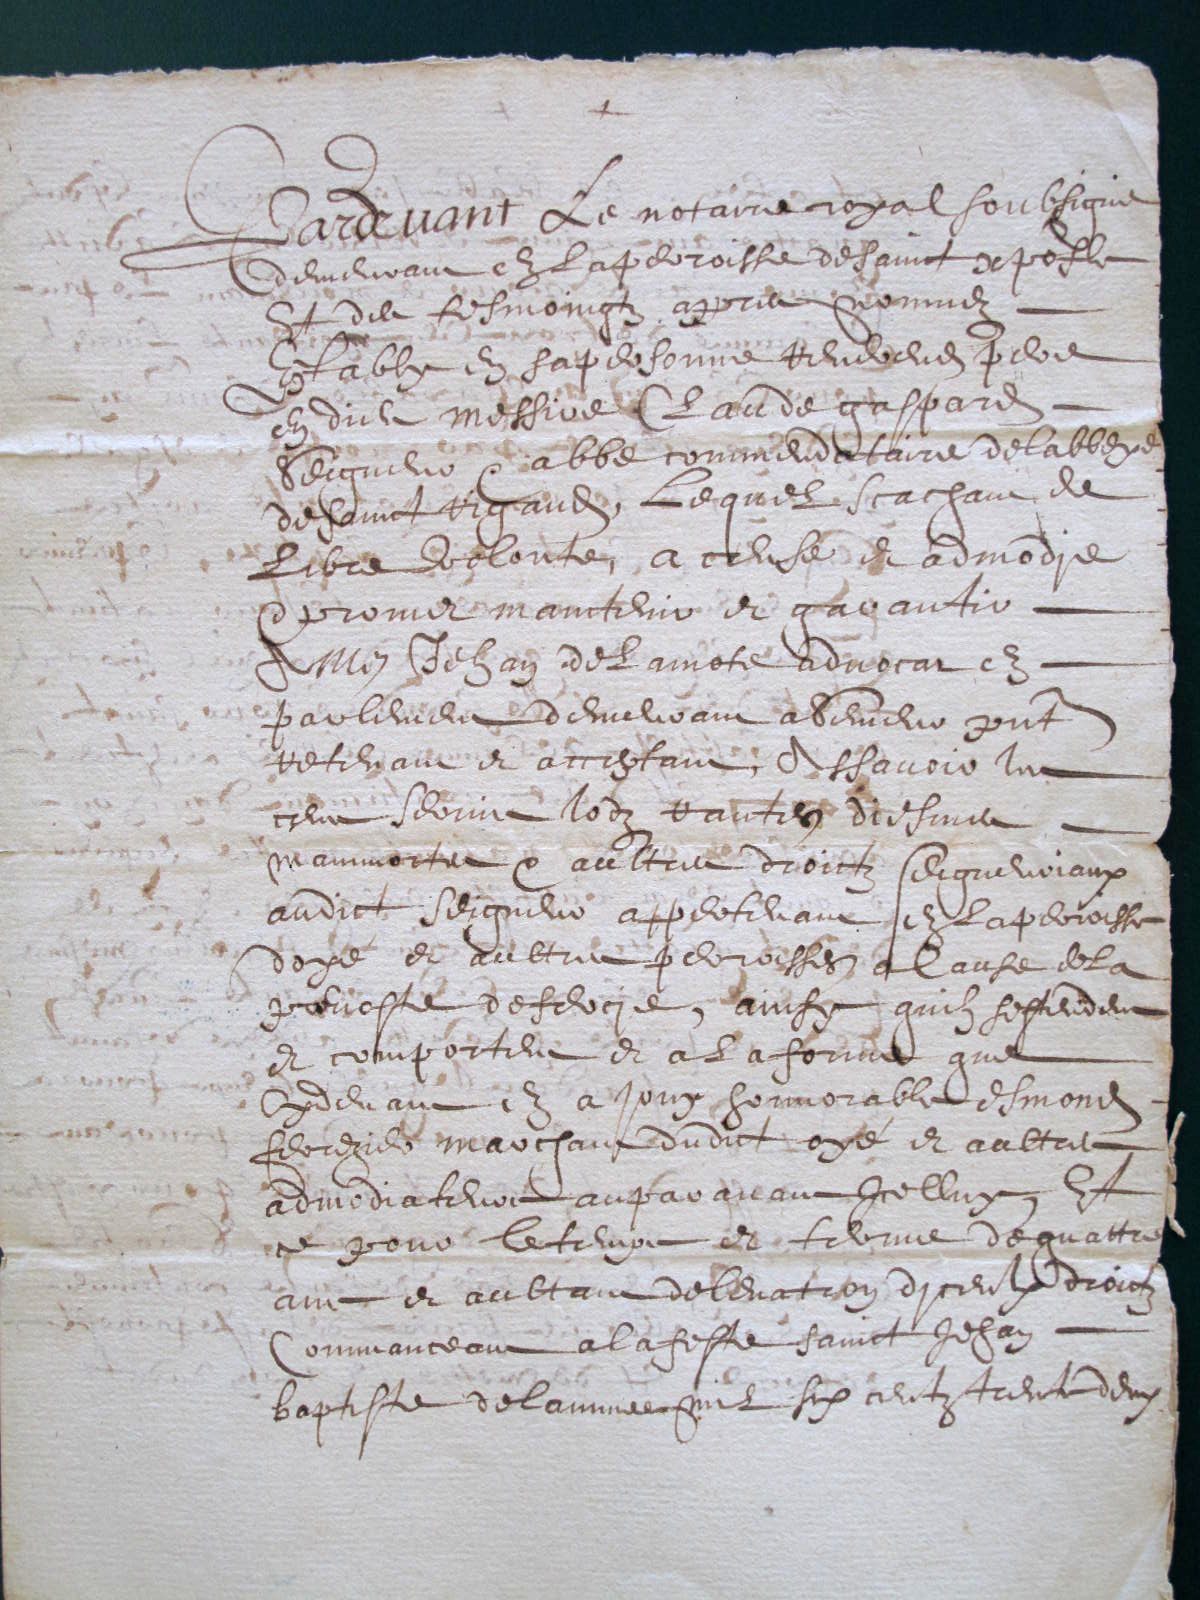 Pardevant Le notaire royal soubsigne
demeurant en La perroisse de sainct xpofle
Et des tesmoingtz apres nommez
Estably en sa personne reverend pere
en dieu messire Claude gaspard
Seigneur abbe commendataire de labbeye
de sainct rigaud, Lequel scachant de
Libre volonte, a cense et admodie
et promet maintenir et garantir
A Me Jehan de Lamote advocat en
parlement demeurant a Semeur pnt
retenant et acceptant, Assavoir les
cens servis lodz vantes diesmes
mainmortes & aultres droictz seigneuriaux
audict seigneur appertenant en La perroisse
doyé et aultres perroisses a Cause de la
prevoste de sercie, ainsy quilz sestendent
et comportent et a La forme que
Cydevant en a jouy honnorable esmond
marchant dudict oyé et aultres
admodiateurs auparavant Jcelluy, Et
ce pour le temps et terme de quattre
ans et aultant de levation diceulx droictz
Commanceant a la feste sainct Jehan
baptiste de lannee mil six centz trente deux